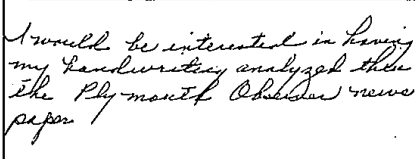 I would be interested in having
my handwriting analyzed thru
the Plymouth Observer news
paper